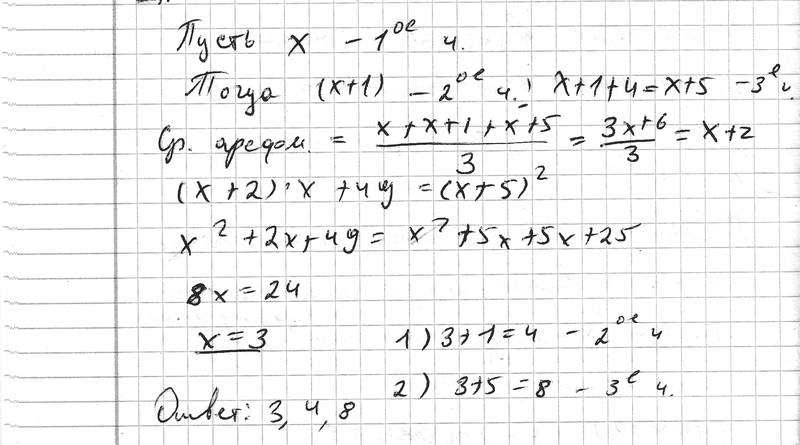 Пусть x – 1ое ч.
Тогда (x+1) – 2ое ч.; x+1+4=x+5 – 3е ч.
Ср. аредом. = (x+x+1+x+5)/3 = (3x+6)/3 = x+2
(x+2)·x+49=(x+5)²
x²+2x+49=x²+5x+5x+25
8x=24
x=3 1) 3+1=4 – 2ое ч
2) 3+5=8 – 3е ч.
Ответ: 3, 4, 8